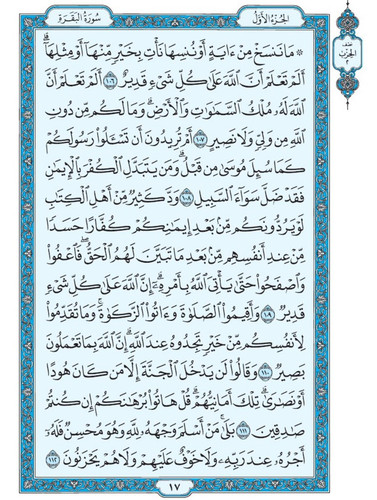 الجُزْءُ الأَوَّلُ
سُورَةُ البَقَرَةِ
۞ مَا نَنسَخْ مِنْ ءَايَةٍ أَوْ نُنسِهَا نَأْتِ بِخَيْرٍ مِّنْهَآ أَوْ مِثْلِهَآۗ
أَلَمْ تَعْلَمْ أَنَّ ٱللَّهَ عَلَىٰ كُلِّ شَىْءٍ قَدِيرٌ ١٠٦ أَلَمْ تَعْلَمْ أَنَّ
ٱللَّهَ لَهُۥ مُلْكُ ٱلسَّمَٰوَٰتِ وَٱلْأَرْضِۗ وَمَا لَكُم مِّن دُونِ
ٱللَّهِ مِن وَلِىٍّ وَلَا نَصِيرٍ ١٠٧ أَمْ تُرِيدُونَ أَن تَسْـَٔلُوا۟ رَسُولَكُمْ
كَمَا سُئِلَ مُوسَىٰ مِن قَبْلُۗ وَمَن يَتَبَدَّلِ ٱلْكُفْرَ بِٱلْإِيمَٰنِ
فَقَدْ ضَلَّ سَوَآءَ ٱلسَّبِيلِ ١٠٨ وَدَّ كَثِيرٌ مِّنْ أَهْلِ ٱلْكِتَٰبِ
لَوْ يَرُدُّونَكُم مِّنۢ بَعْدِ إِيمَٰنِكُمْ كُفَّارًا حَسَدًا
مِّنْ عِندِ أَنفُسِهِم مِّنۢ بَعْدِ مَا تَبَيَّنَ لَهُمُ ٱلْحَقُّۖ فَٱعْفُوا۟
وَٱصْفَحُوا۟ حَتَّىٰ يَأْتِىَ ٱللَّهُ بِأَمْرِهِۦٓۗ إِنَّ ٱللَّهَ عَلَىٰ كُلِّ شَىْءٍ
قَدِيرٌ ١٠٩ وَأَقِيمُوا۟ ٱلصَّلَوٰةَ وَءَاتُوا۟ ٱلزَّكَوٰةَۚ وَمَا تُقَدِّمُوا۟
لِأَنفُسِكُم مِّنْ خَيْرٍ تَجِدُوهُ عِندَ ٱللَّهِۗ إِنَّ ٱللَّهَ بِمَا تَعْمَلُونَ
بَصِيرٌ ١١٠ وَقَالُوا۟ لَن يَدْخُلَ ٱلْجَنَّةَ إِلَّا مَن كَانَ هُودًا
أَوْ نَصَٰرَىٰۗ تِلْكَ أَمَانِيُّهُمْۗ قُلْ هَاتُوا۟ بُرْهَٰنَكُمْ إِن كُنتُمْ
صَٰدِقِينَ ١١١ بَلَىٰ مَنْ أَسْلَمَ وَجْهَهُۥ لِلَّهِ وَهُوَ مُحْسِنٌ فَلَهُۥٓ
أَجْرُهُۥ عِندَ رَبِّهِۦ وَلَا خَوْفٌ عَلَيْهِمْ وَلَا هُمْ يَحْزَنُونَ ١١٢
١٧